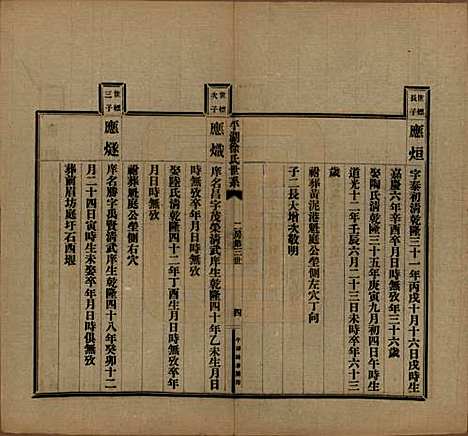 世標長子
應烜
字泰初清乾隆三十一年丙戌十月十六日戌時生
嘉慶六年辛酉卒月日時無攷年三十六歲
娶陶氏清乾隆三十五年庚寅九月初四日午時生
道光十二年壬辰六月二十三日未時卒年六十三
歲
祔葬黃泥港魁庭公塋側左穴丁向
子二長大增次敬明
平湖徐氏世系
二房第三世
四
世標次子
應熾
庠名昌字茂榮清武庠生乾隆四十年乙未生月日
時無攷卒年月日時無攷
娶陸氏清乾隆四十二年丁酉生月日時無攷卒年
月日時無攷
祔葬魁庭公塋側右穴
世標三子
應燧
庠名勝字禹賢清武庠生乾隆四十八年癸卯十二
月二十四日寅時生未娶卒年月日時俱無攷
葬前眉坊庭圩石西堰